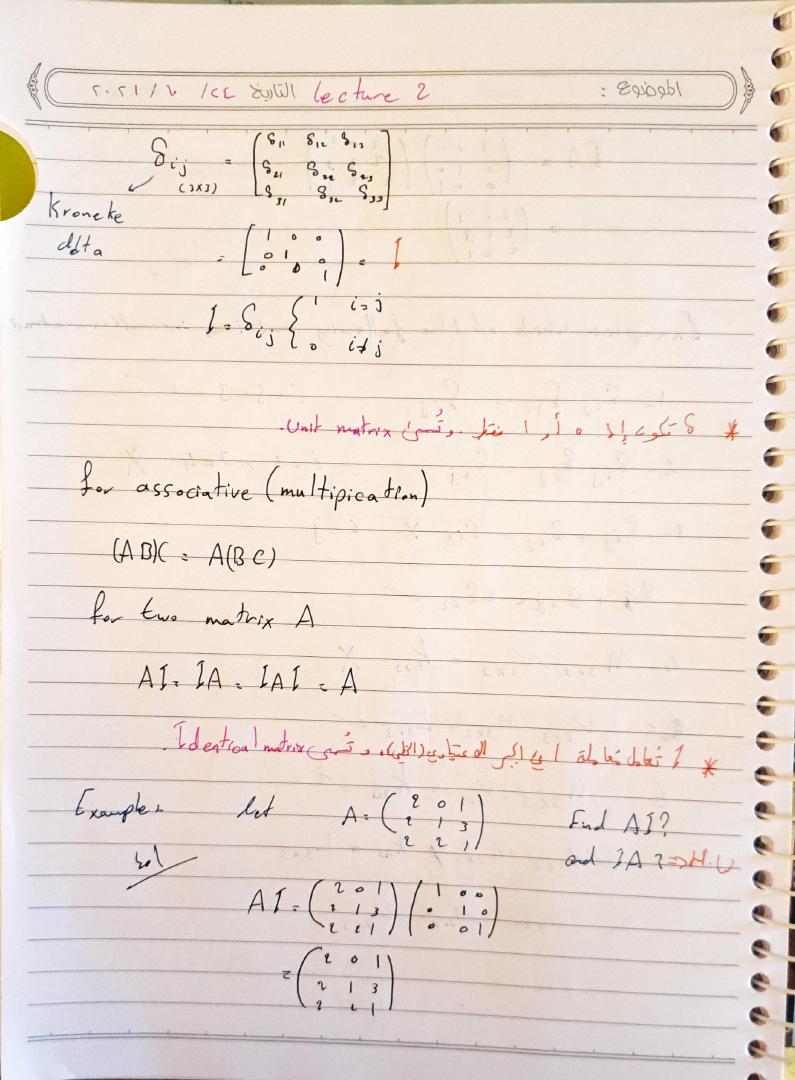 الموضوع : lecture 2 التاريخ ٢٤/ ١٠ / ٢٠٢١
δij (3x3) = [δ11 δ12 δ13
δ21 δ22 δ23
δ31 δ32 δ33]
Kroneke
delta
= [1 0 0
0 1 0
0 0 1] = I
I = δij { 1 i=j
0 i≠j
* δ تكون إلا 0 أو 1 فقط . وتُسمى Unit matrix.
for associative (multipication)
(AB)C = A(BC)
for two matrix A
AI = IA = IAI = A
* I تُعامل مُعاملة 1 في الجبر الاعتيادي (الخطي)، و تُسمى Identical matrix.
Example: let A = (2 0 1
2 1 3
2 2 1) Find AI?
and IA? => H.W
sol
AI = (2 0 1
2 1 3
2 2 1) (1 0 0
0 1 0
0 0 1)
= (2 0 1
2 1 3
2 2 1)